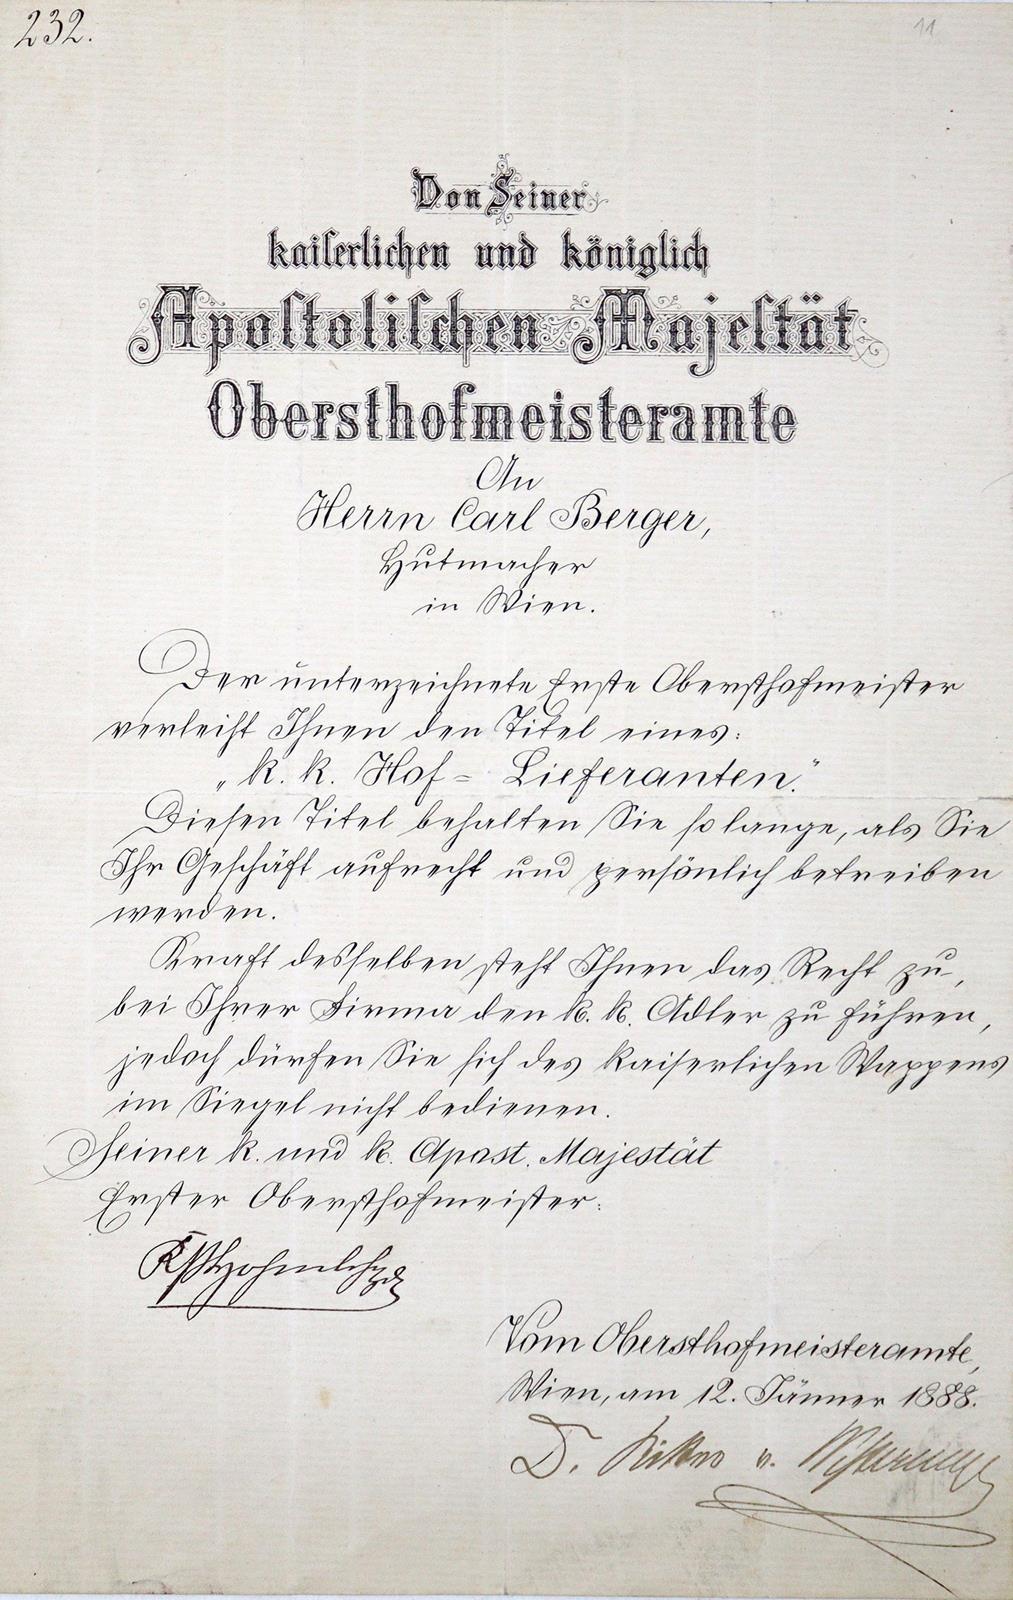 232.
11
Von Seiner
kaiserlichen und königlich
Apostolischen Majestät
Obersthofmeisteramte
An
Herrn Carl Berger,
Hutmacher
in Wien.
Der unterzeichnete Erste Obersthofmeister
verleiht Ihnen den Titel eines:
„k. k. Hof= Lieferanten."
Diesen Titel behalten Sie so lange, als Sie
Ihr Geschäft aufrecht und persönlich betreiben
werden.
Kraft desselben steht Ihnen das Recht zu,
bei Ihrer Firma den k. k. Adler zu führen,
jedoch dürfen Sie sich des kaiserlichen Wappens
im Siegel nicht bedienen.
Seiner k. und k. Apost. Majestät
Erster Obersthofmeister:
Hohenlohe
Vom Obersthofmeisteramte,
Wien, am 12. Jänner 1888.
D. v.